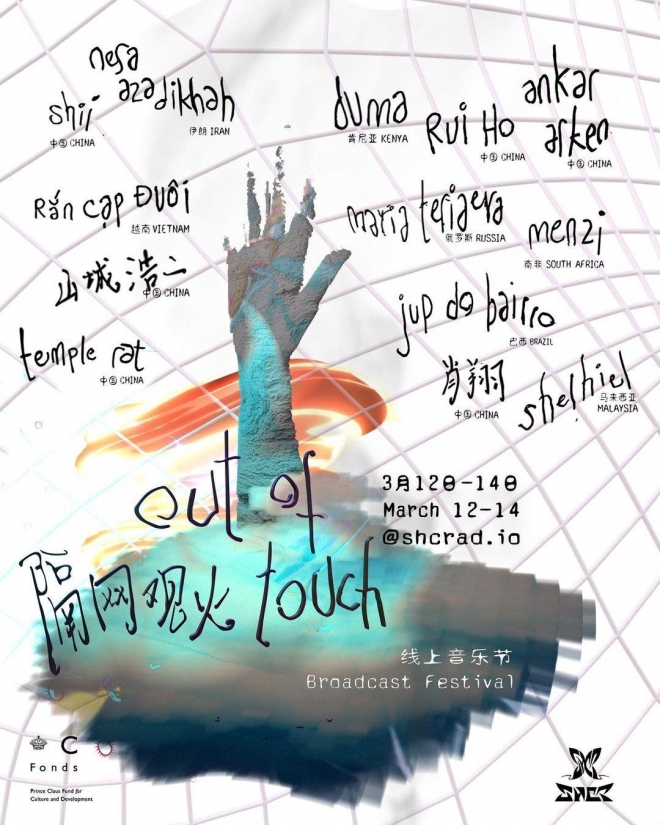 nesa
azadikhah
伊朗 IRAN
shii
中国 CHINA
duma
肯尼亚 KENYA
Rui Ho
中国 CHINA
ankar
arken
中国 CHINA
Rắn Cạp Đuôi
越南 VIETNAM
maria teriaeva
俄罗斯 RUSSIA
menzi
南非 SOUTH AFRICA
山城浩二
中国 CHINA
jup do bairro
巴西 BRAZIL
temple rat
中国 CHINA
肖翔
中国 CHINA
shelhiel
马来西亚
MALAYSIA
out of
touch
隔网观火
3月12日-14日
March 12-14
@shcrad.io
线上音乐节
Broadcast Festival
C
Fonds
Prince Claus Fund for
Culture and Development
SHCR